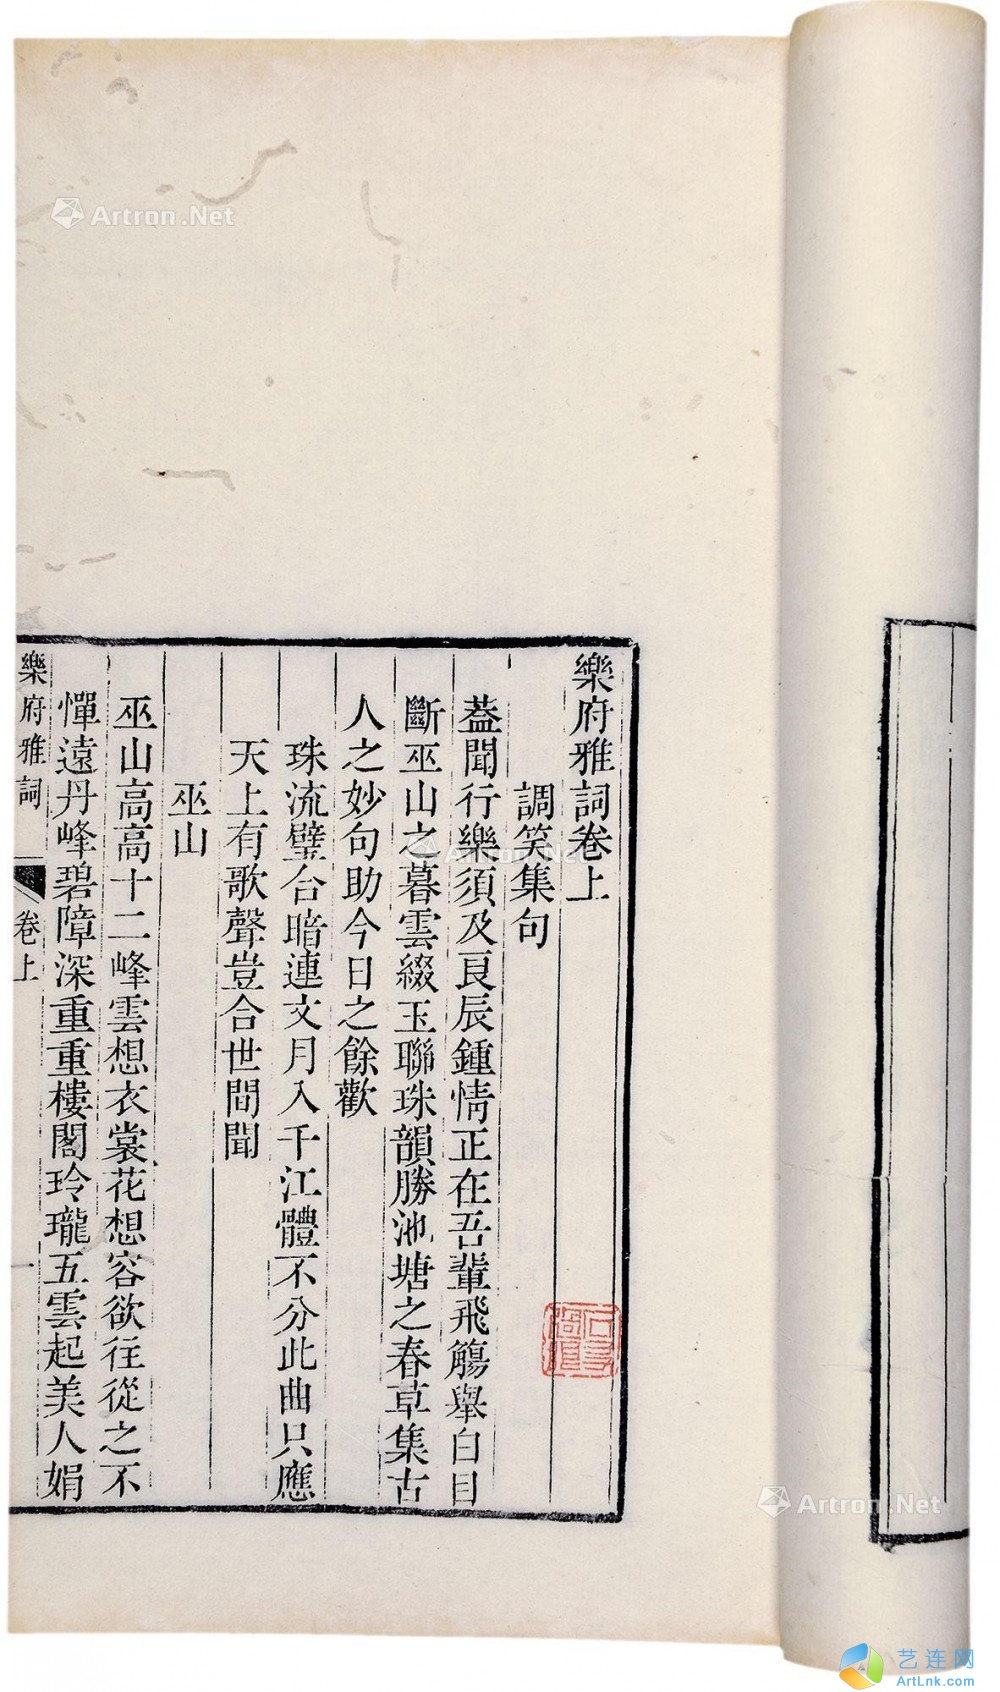 樂府雅詞卷上
調笑集句
葢聞行樂須及良辰鍾情正在吾輩飛觴舉白目
斷巫山之暮雲綴玉聯珠韻勝池塘之春草集古
人之妙句助今日之餘歡
珠流璧合暗連文月入千江體不分此曲只應
天上有歌聲豈合世間聞
巫山
巫山高高十二峰雲想衣裳花想容欲往從之不
憚遠丹峰碧障深重重樓閣玲瓏五雲起美人娟
樂府雅詞 卷上 一
Artron.Net
Artron.Net
Artron.Net
艺连网
ArtLnk.com